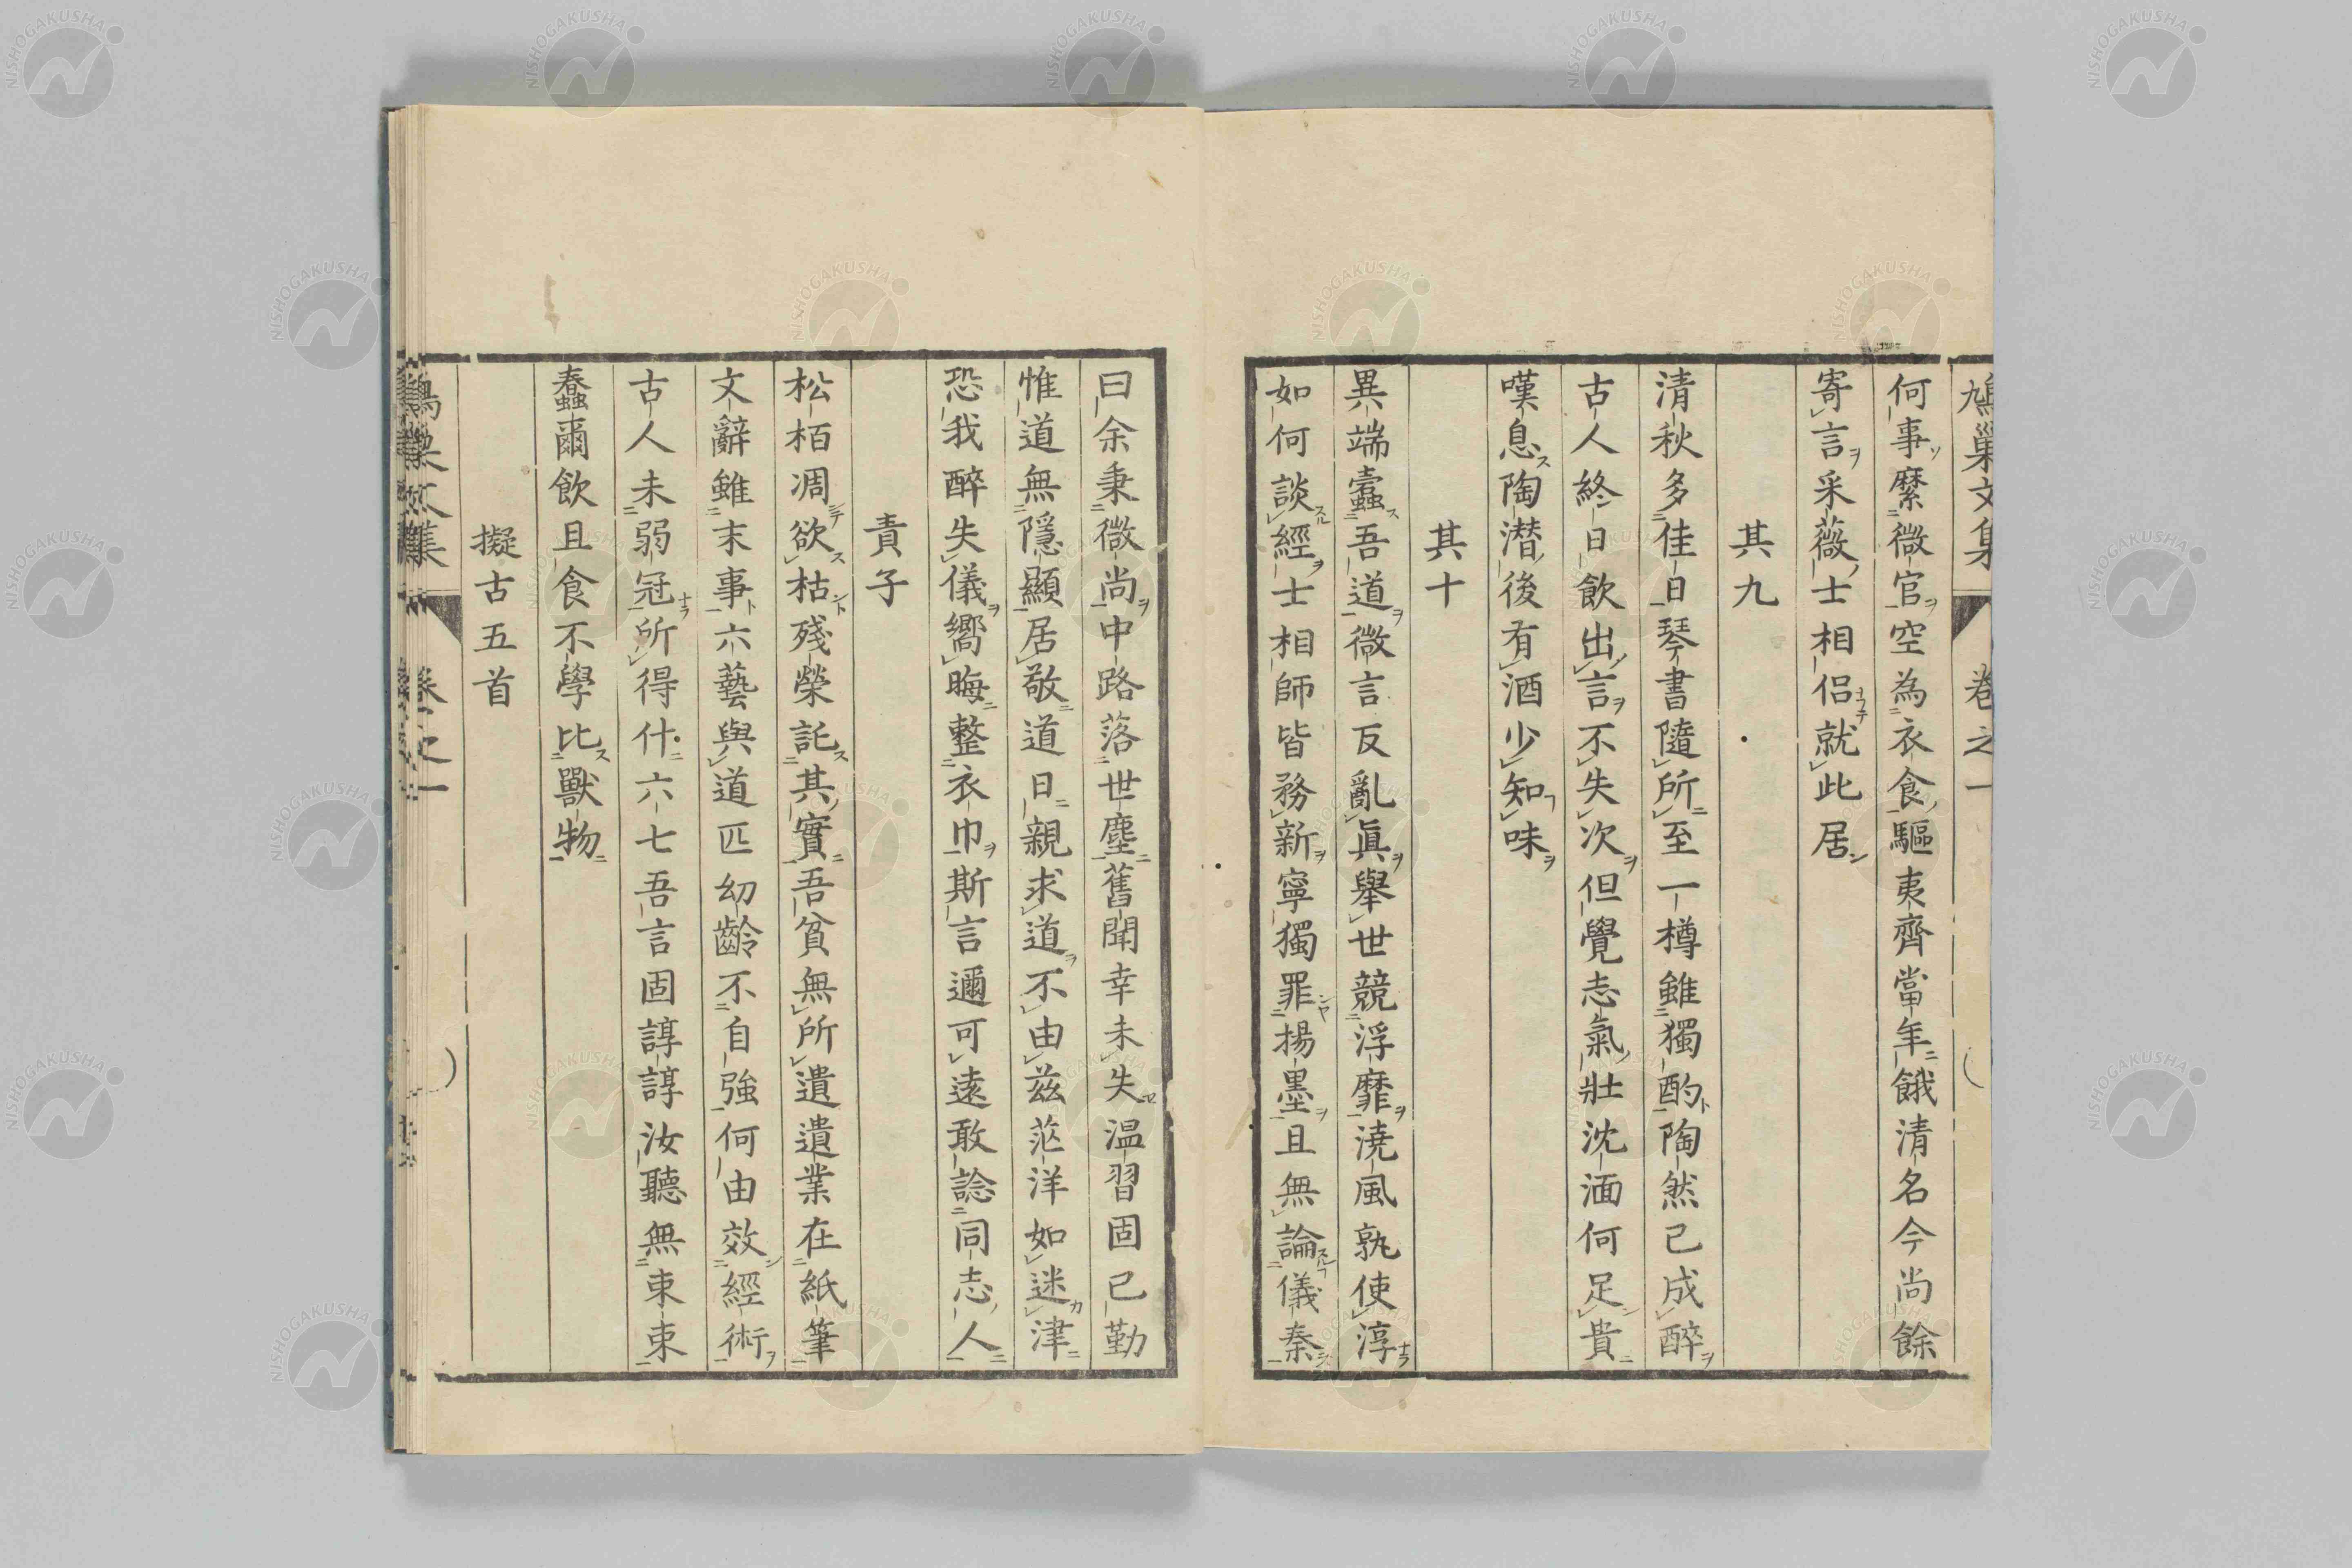 鳩巢文集 卷之一
何事縻微官空為衣食驅夷齊當年餓清名今尚餘
寄言采薇士相侶就此居
其九
清秋多佳日琴書隨所至一樽雖獨酌陶然已成醉
古人終日飲出言不失次但覺志氣壯沈湎何足貴
嘆息陶潛後有酒少知味
其十
異端蠹吾道微言反亂眞舉世競浮靡澆風孰使淳
如何談經士相師皆務新寧獨罪揚墨且無論儀秦
曰余秉微尚中路落世塵舊聞幸未失温習固已勤
惟道無隱顯居敬道日親求道不由兹茫洋如迷津
恐我醉失儀嚮晦整衣巾斯言邇可遠敢諗同志人
責子
松栢凋欲枯殘榮託其實吾貧無所遺遺業在紙筆
文辭雖末事六藝與道匹幼齡不自強何由效經術
古人未弱冠所得什六七吾言固諄諄汝聽無束束
蠢爾飲且食不學比獸物
擬古五首
鳩巢文集 卷之一
NISHOGAKUSHA